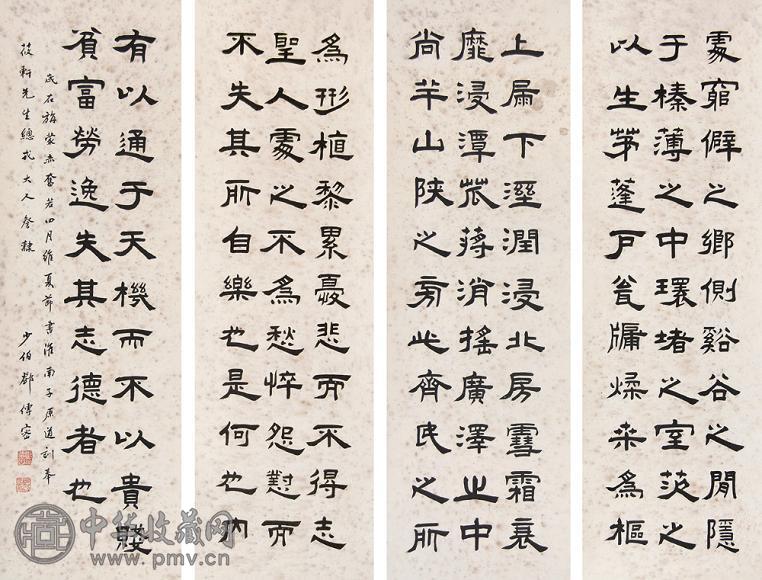 處窮僻之鄉側谿谷之閒隱
于榛薄之中環堵之室茨之
以生茅蓬戶瓮牖煣桒為樞
上屚下溼潤浸北房雪霜衰
靡浸潭苽蔣消搖廣澤之中
尚羊山陝之旁此齊民之所
為形植黎累憂悲而不得志
聖人處之不為愁悴怨懟而
不失其所自樂也是何也內
有以通于天機而不以貴賤
貧富勞逸失其志德者也
旃蒙赤奮若四月維夏節書淮南子原道訓奉
筱軒先生總戎大人 隸 少伯鄧傳密
中华收藏网
www.pmv.cn